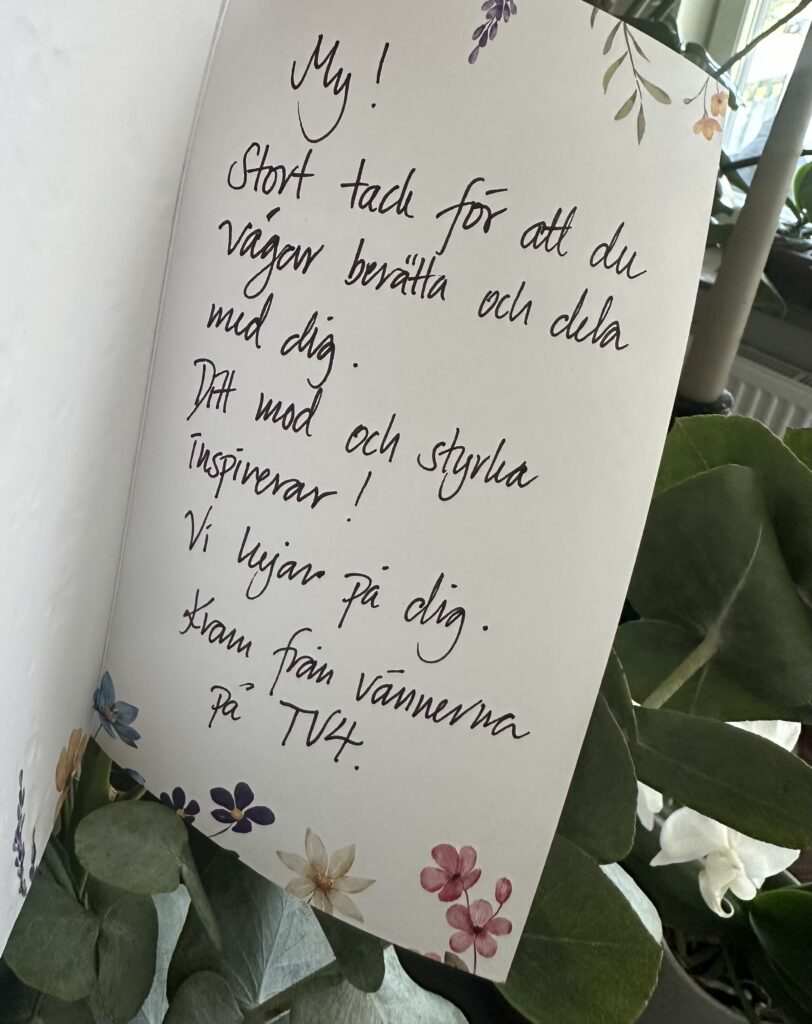 My!
Stort tack för att du
vågar berätta och dela
med dig.
Ditt mod och styrka
inspirerar!
Vi hejar på dig.
Kram från vännerna
på TV4.